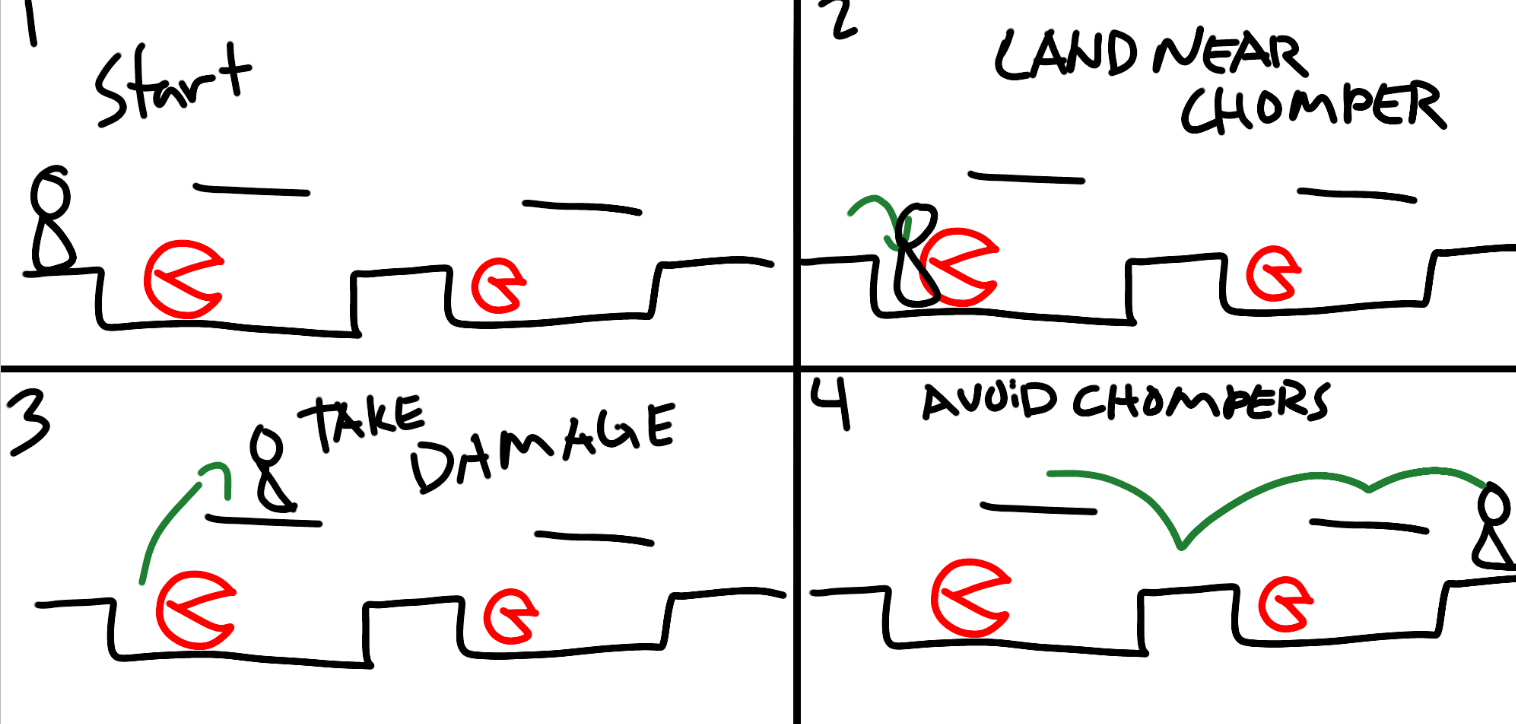 1
Start
2
LAND NEAR
CHOMPER
3
TAKE
DAMAGE
4
AVOiD CHOMPERS